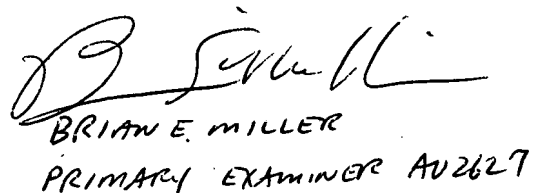 BRIAN E. MILLER
PRIMARY EXAMINER AU2627